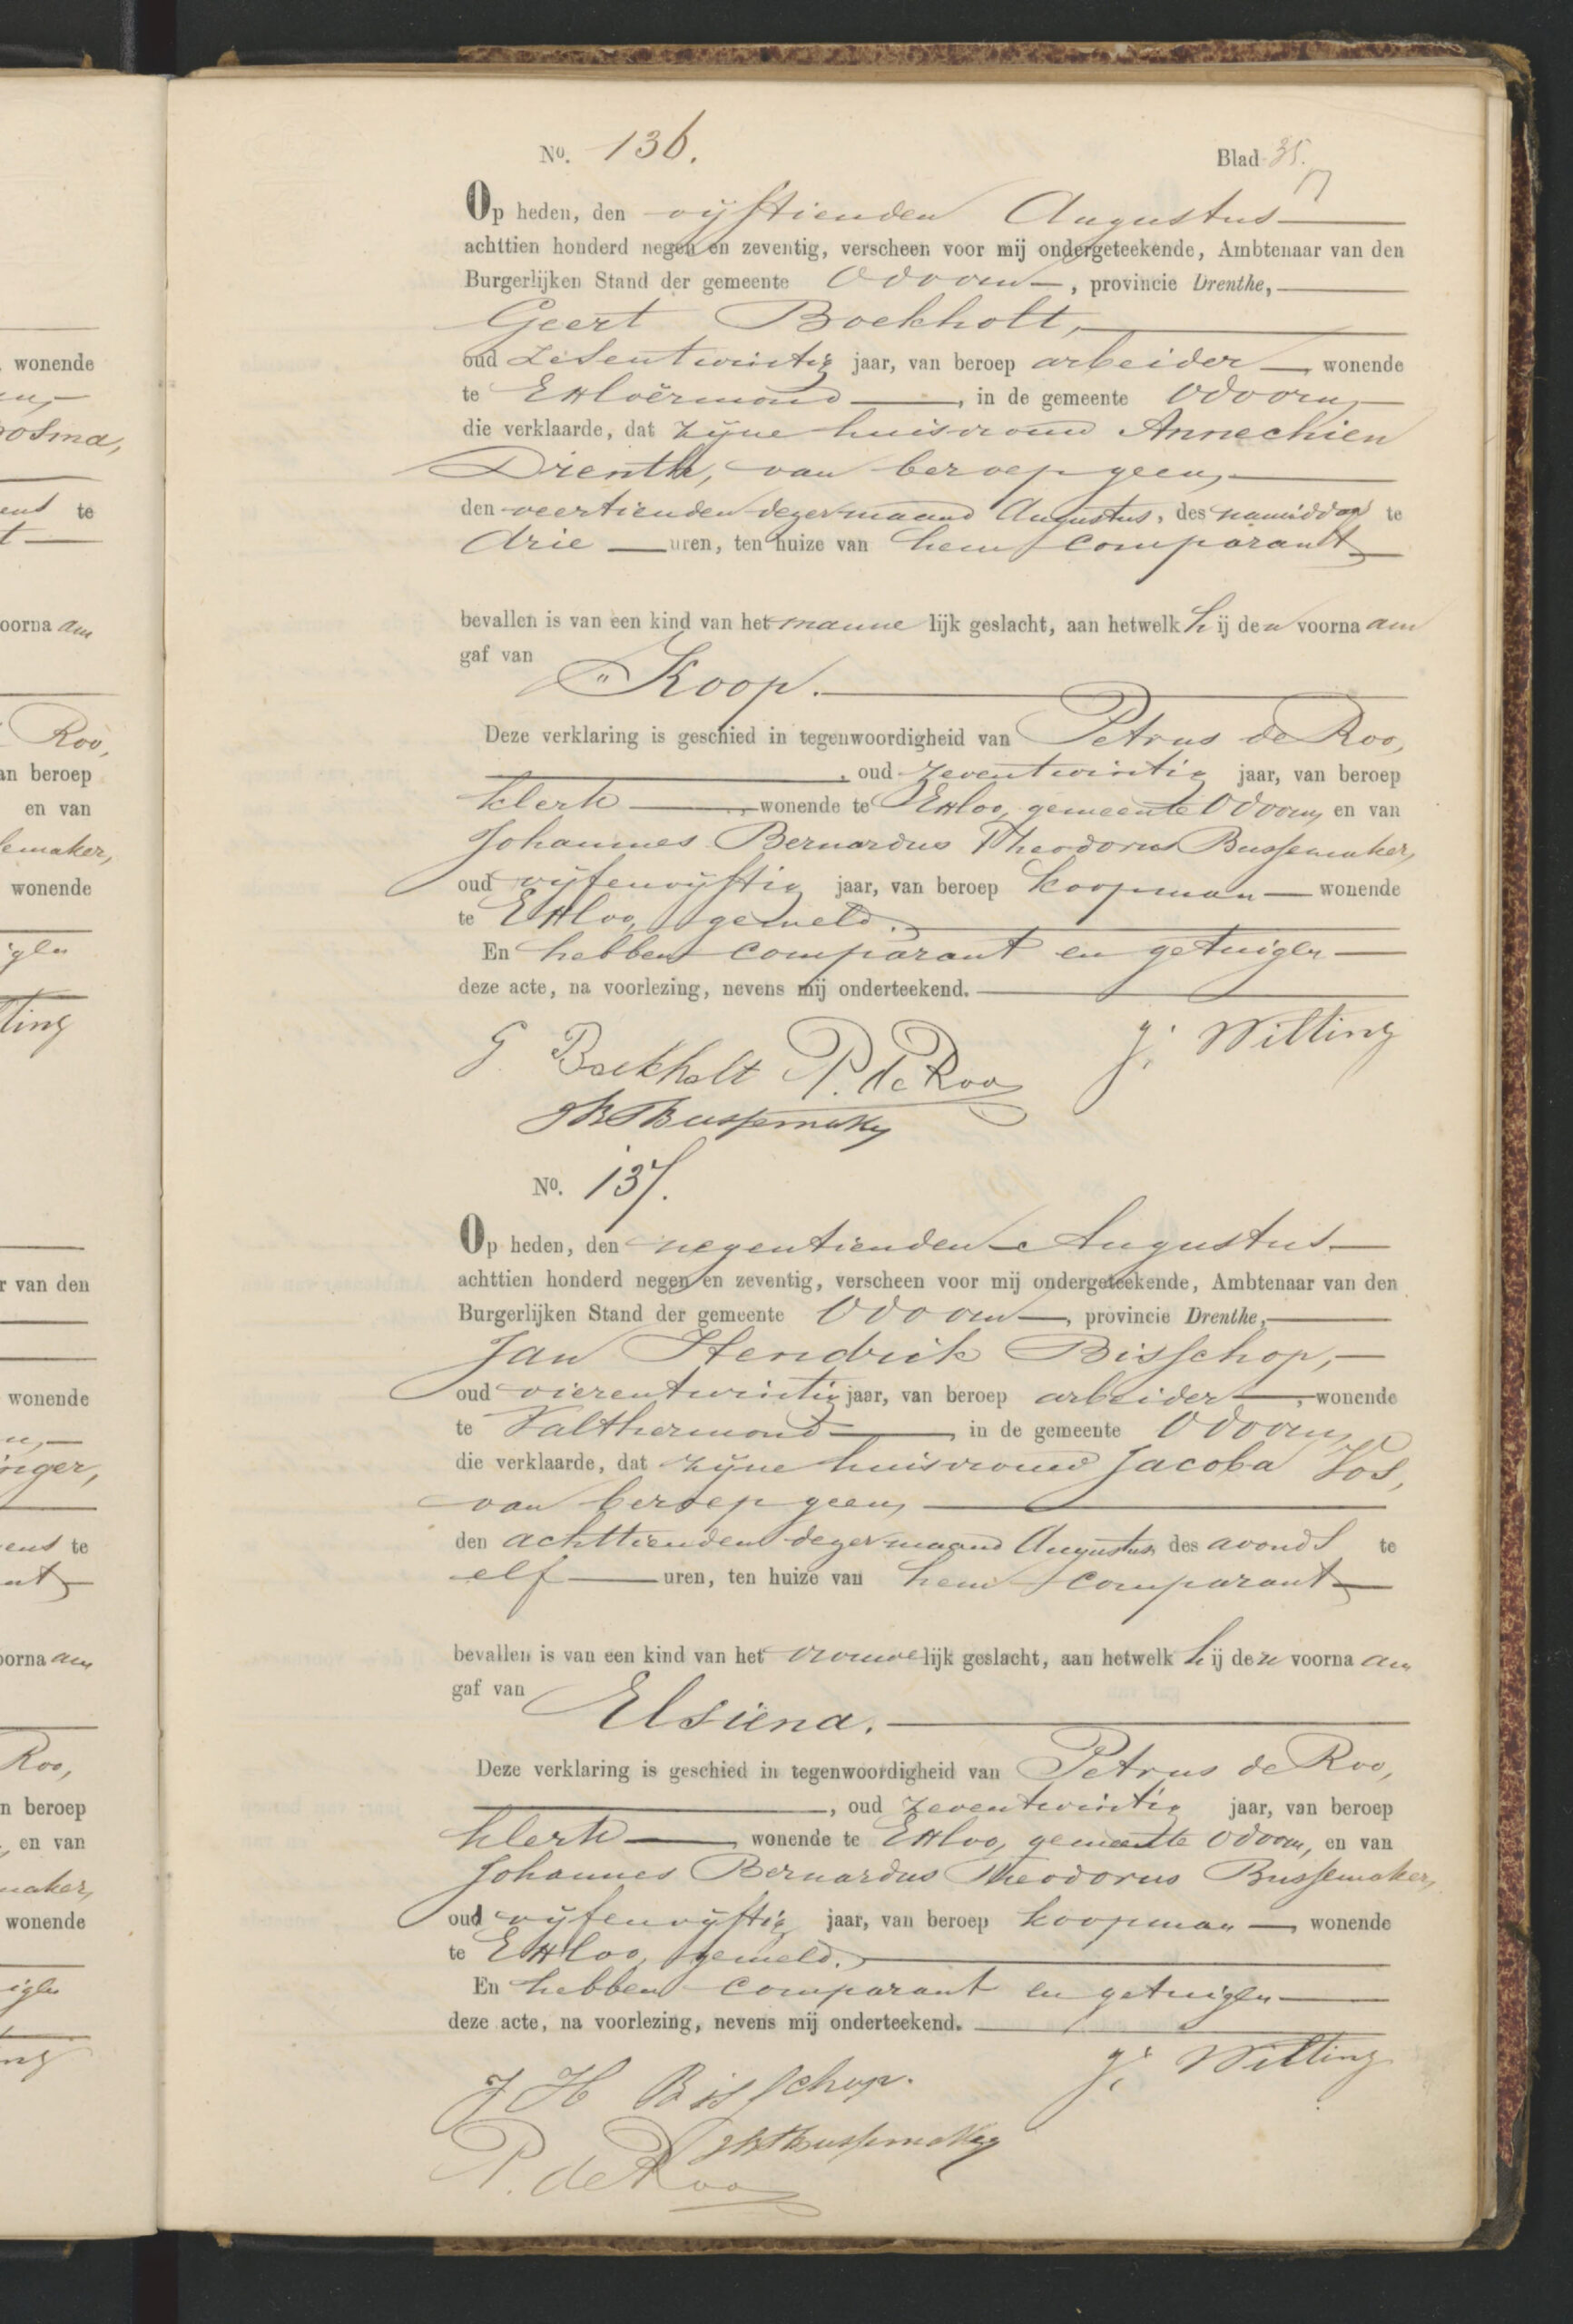 wonende
osma,
te
oorna am
Roo,
an beroep
en van
emaker,
wonende
ting
r van den
wonende
te
oorna am
Roo,
n beroep
en van
maker,
wonende
No. 136.
Blad 35.
Op heden, den vijftienden Augustus
achttien honderd negen en zeventig, verscheen voor mij ondergeteekende, Ambtenaar van den
Burgerlijken Stand der gemeente Odoorn, provincie Drenthe,
Geert Boekholt,
oud zesentwintig jaar, van beroep arbeider wonende
te Exloërmond, in de gemeente Odoorn,
die verklaarde, dat zijne huisvrouw Annechien
Drenth, van beroep geen,
den veertienden dezer maand Augustus, des namiddags te
drie uren, ten huize van hem comparant
bevallen is van een kind van het mannelijk geslacht, aan hetwelk hij den voornaam
gaf van
"Koop.
Deze verklaring is geschied in tegenwoordigheid van Petrus de Roo,
, oud zeventwintig jaar, van beroep
klerk, wonende te Exloo, gemeente Odoorn, en van
Johannes Bernardus Theodorus Bussemaker,
oud vijfenvijftig jaar, van beroep koopman wonende
te Exloo, gemeld.
En hebben comparant en getuigen
deze acte, na voorlezing, nevens mij onderteekend.
G Boekholt P. de Roo J. Wilting
JBTBussemaker
No. 137.
Op heden, den negentienden Augustus
achttien honderd negen en zeventig, verscheen voor mij ondergeteekende, Ambtenaar van den
Burgerlijken Stand der gemeente Odoorn, provincie Drenthe,
Jan Hendrik Bisschop,
oud vierentwintig jaar, van beroep arbeider, wonende
te Valthermond, in de gemeente Odoorn,
die verklaarde, dat zijne huisvrouw Jacoba Vos,
van beroep geen,
den achttienden dezer maand Augustus des avonds te
elf uren, ten huize van hem comparant
bevallen is van een kind van het vrouwelijk geslacht, aan hetwelk hij den voornaam
gaf van
Elsiena.
Deze verklaring is geschied in tegenwoordigheid van Petrus de Roo,
, oud zeventwintig jaar, van beroep
klerk, wonende te Exloo, gemeente Odoorn, en van
Johannes Bernardus Theodorus Bussemaker,
oud vijfenvijftig jaar, van beroep koopman, wonende
te Exloo, gemeld.
En hebben comparant en getuigen
deze acte, na voorlezing, nevens mij onderteekend.
J H Bisschop. J. Wilting
JBTBussemaker
P. de Roo